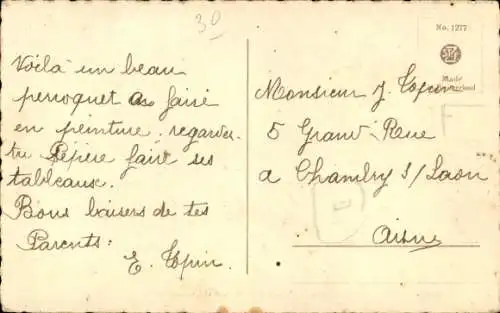 30
Voilà un beau
perroquet a faire
en peinture. regarde
tu Pépère fait ses
tableaux.
Bons baisers de tes
Parents:
E. Topin.
No. 1277
Made
Monsieur J. Topin
5 Grand Rue
a Chambry s/ Laon
Aisne